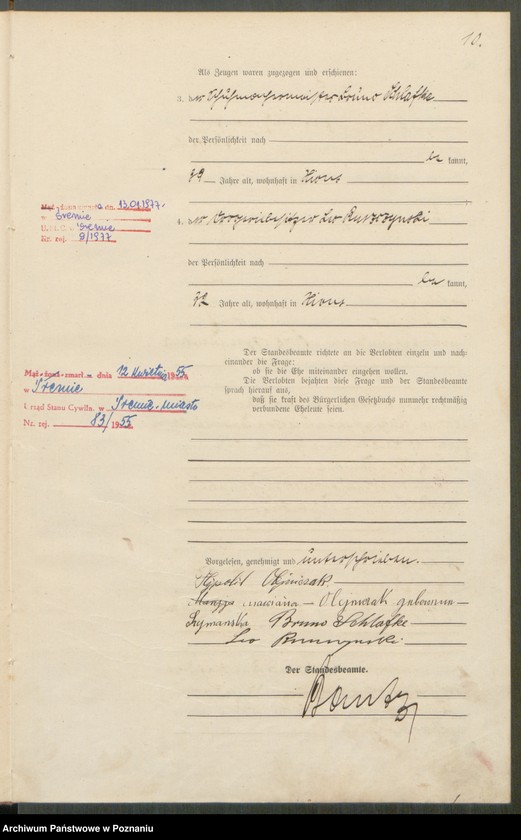 10.
Als Zeugen waren zugezogen und erschienen:
3. der Schuhmachermeister Bruno Schlafke
der Persönlichkeit nach
be kannt,
39 Jahre alt, wohnhaft in Xions
4. der Leo
der Persönlichkeit nach
be kannt,
32 Jahre alt, wohnhaft in Xions
dn. 13.01.1977.
w Śremie
U.S.C. Śremie
Nr. rej. 9/1977
Der Standesbeamte richtete an die Verlobten einzeln und nach-
einander die Frage:
ob sie die Ehe miteinander eingehen wollen.
Die Verlobten bejahten diese Frage und der Standesbeamte
sprach hierauf aus,
daß sie kraft des Bürgerlichen Gesetzbuchs nunmehr rechtmäßig
verbundene Eheleute seien.
Mąż-żona-zmarł dnia 12 kwietnia 1955
w Śremie
Urząd Stanu Cywiln. w Śremie-miasto
Nr. rej. 83/1955
Vorgelesen, genehmigt und unterschrieben.
Olejniczak
Olejniczak geborene
Szymańska Bruno Schlafke
Leo
Der Standesbeamte.
Archiwum Państwowe w Poznaniu